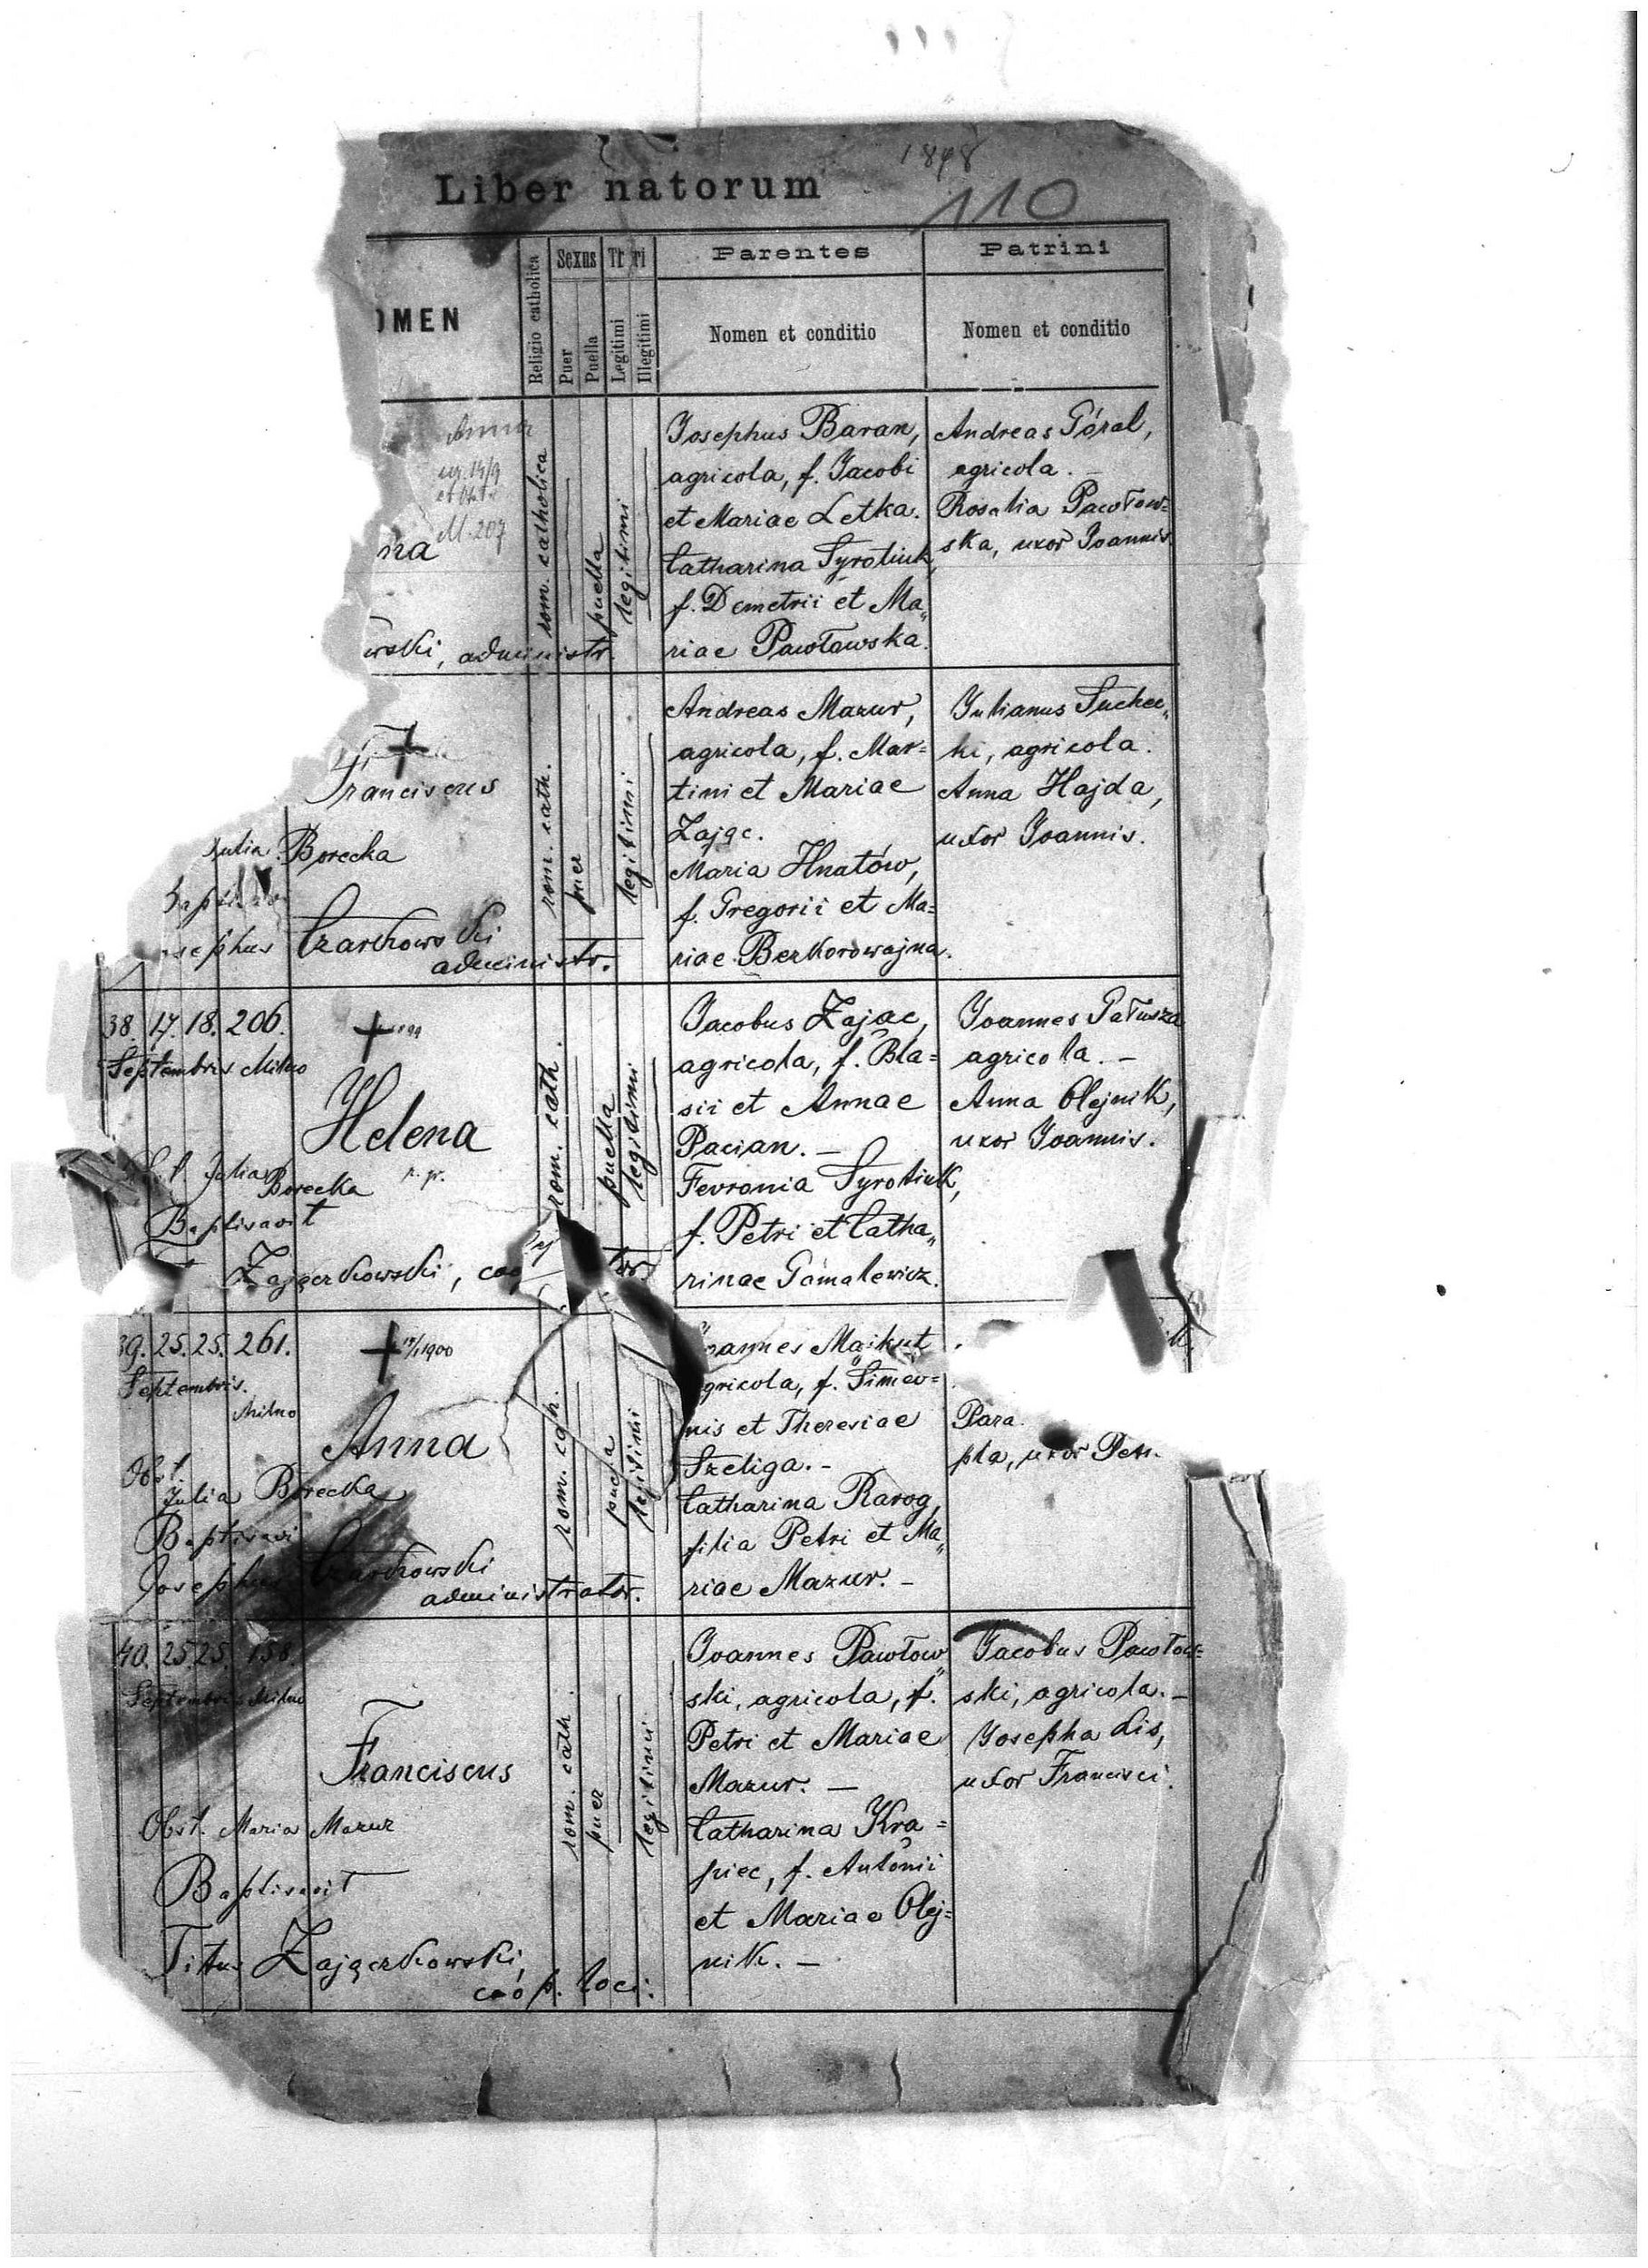 1898
Liber natorum
110
OMEN
Religio catholica
Sexus
Puer
Puella
Legitimi
Illegitimi
Parentes
Nomen et conditio
Patrini
Nomen et conditio
Anna
M. 207
na
wski, administr.
rom. catholica
puella
legitimi
Josephus Baran,
agricola, f. Jacobi
et Mariae Letka.
Catharina Syrotiuk,
f. Demetrii et Ma„
riae Pawłowska.
Andreas Góral,
agricola. –
Rosalia Pawłow=
ska, uxor Joannis.
Franciscus
Julia Borecka
Czarkowski
administr.
rom. cath.
puer
legitimi
Andreas Mazur,
agricola, f. Mar=
tini et Mariae
Zając.
Maria Hnatów,
f. Gregorii et Ma=
riae Berkorowajna.
Julianus Suchec„
ki, agricola.
Anna Hajda,
uxor Joannis.
38. 17. 18. 206.
Septembris Milno
Helena
Julia
Borecka
Baptisavit
Zajączkowski,
rom. cath.
puella
legitimi
Jacobus Zając,
agricola, f. Bla=
sii et Annae
Pacian. –
Fevronia Syrotiuk,
f. Petri et Catha„
rinae Gamalewicz.
Joannes Pałusza
agricola. –
Anna Olejnik,
uxor Joannis.
39. 25. 25. 261.
Septembris.
Milno
1900
Anna
Obst.
Julia Borecka
Baptisavi
Josephus Czarkowski
administrator.
rom. cath.
legitimi
oannes Majkut
gricola, f. Simeo=
nis et Theresiae
Szeliga. –
Catharina Rarog,
filia Petri et Ma„
riae Mazur. –
Para
ska, uxor Petr
40. 25. 25. 158.
Septembris Milno
Franciscus
Obst. Maria Mazur
Baptisavit
Titus Zajączkowski,
coop. loci.
rom. cath.
puer
legitimi
Joannes Pawłow„
ski, agricola, f.
Petri et Mariae
Mazur. –
Catharina Kra=
piec, f. Antonii
et Mariae Olej=
nik. –
Jacobus Pawłow=
ski, agricola. –
Josepha Lis,
uxor Francisci.